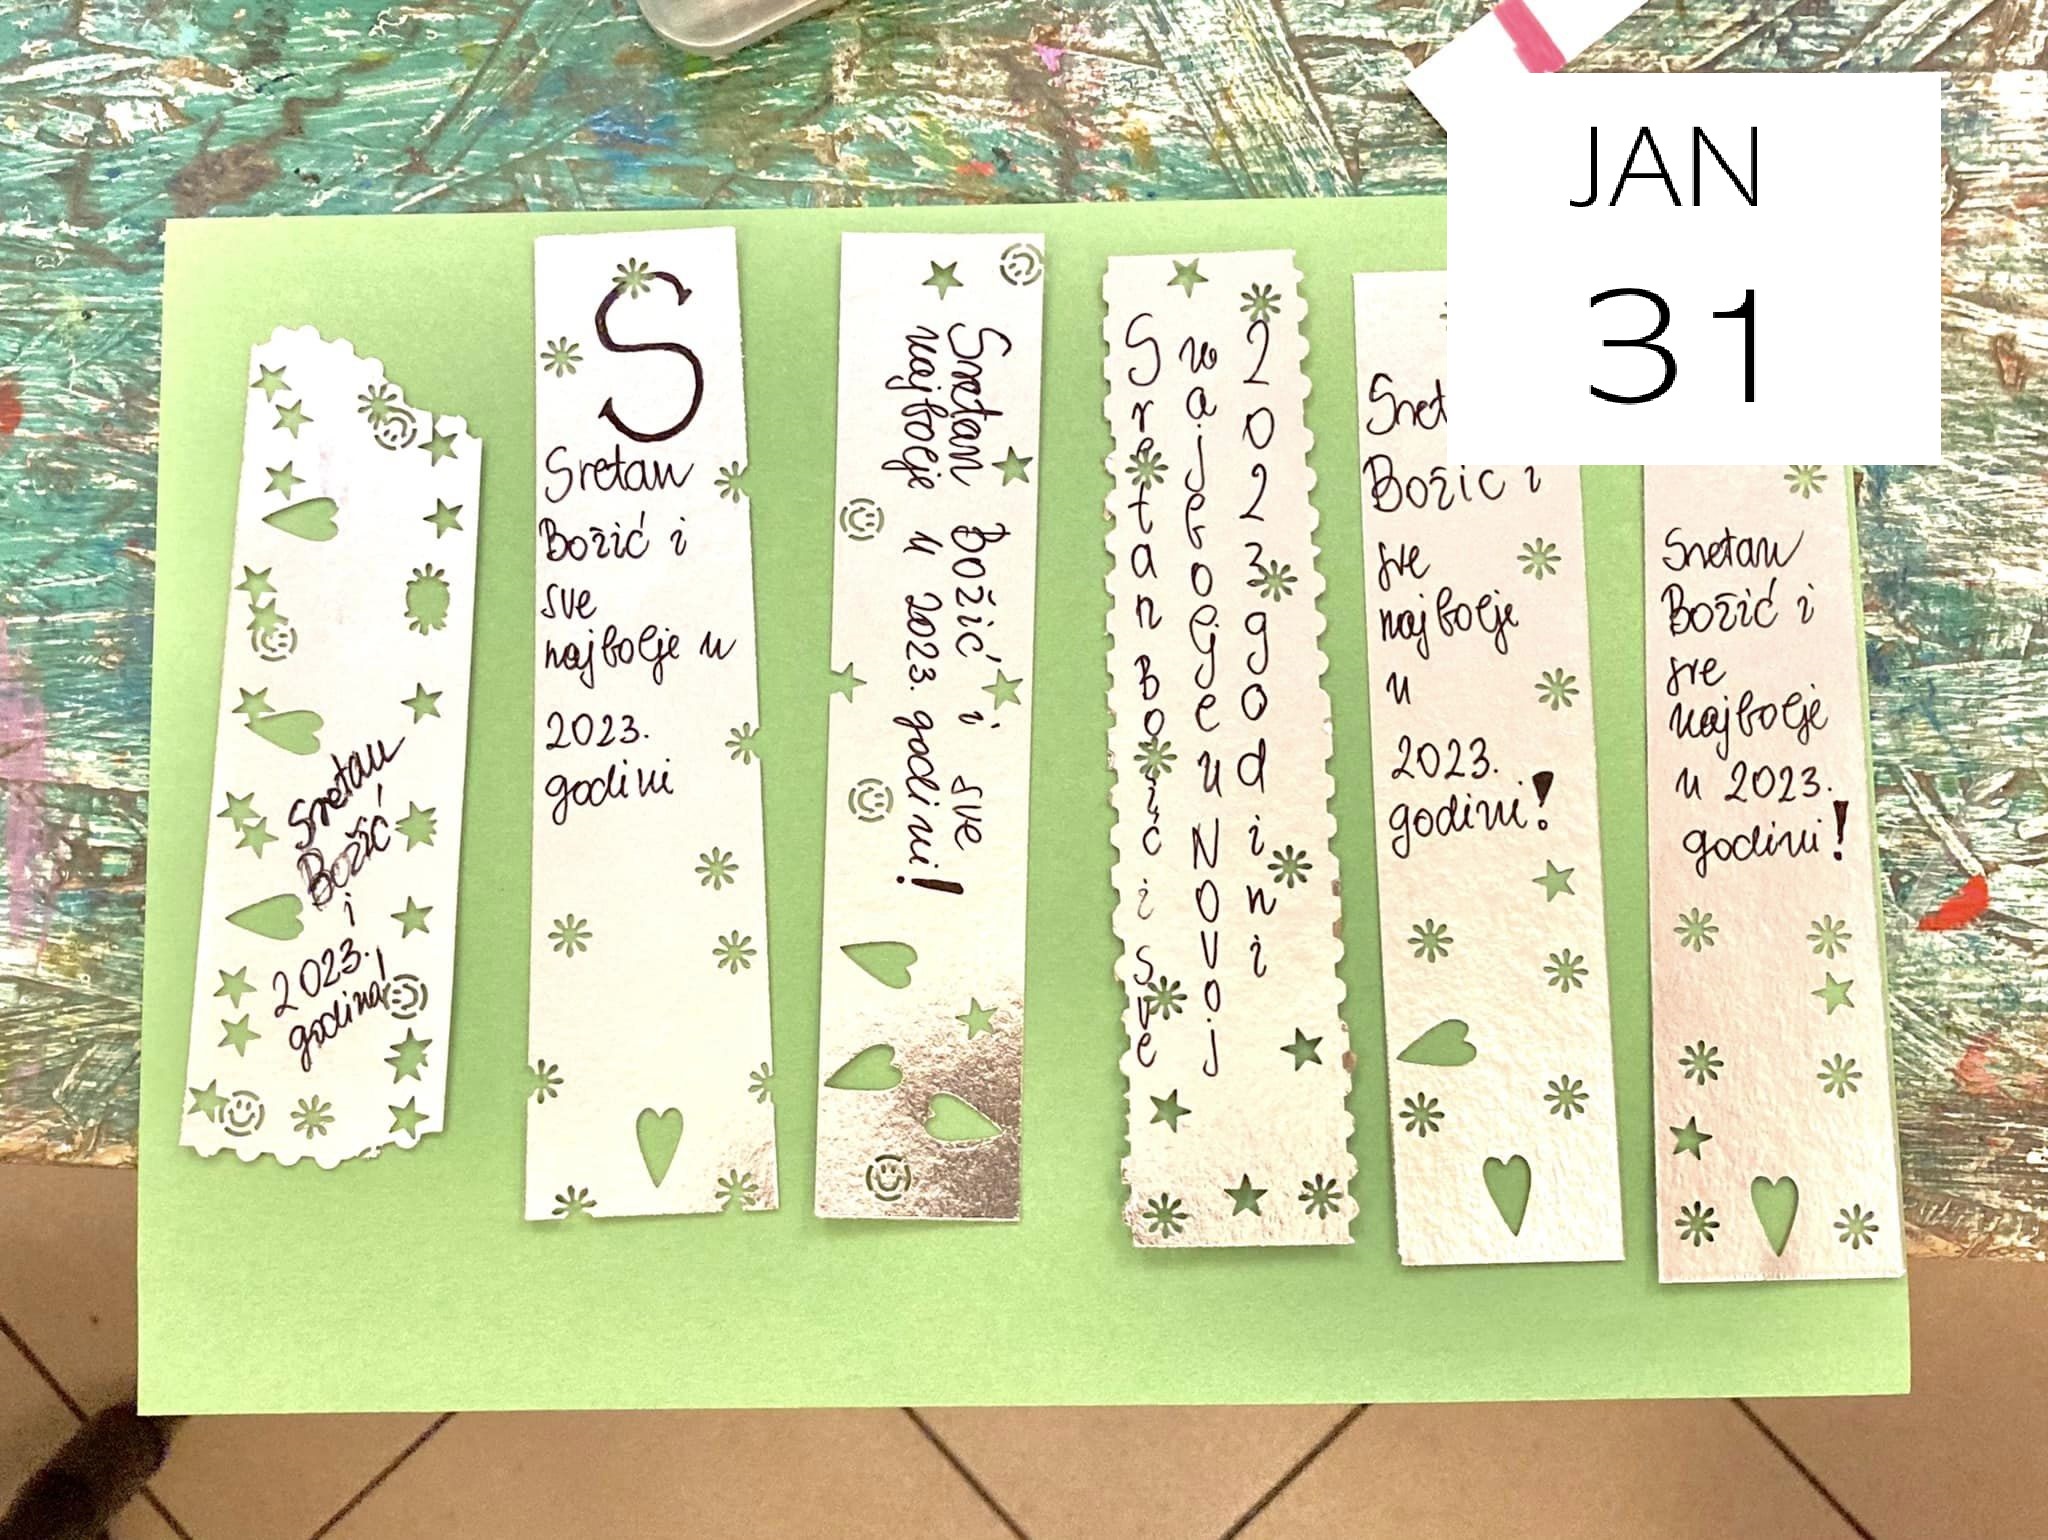 Sretan
Božić
i
2023.
godina!
S
Sretan
Božić i
sve
najbolje u
2023.
godini
Sretan Božić i sve
najbolje u 2023. godini!
Sretan Božić i sve
najbolje u NOVOj
2023 godini
Božić i
sve
najbolje
u
2023.
godini!
Sretan
Božić i
sve
najbolje
u 2023.
godini!
JAN
31